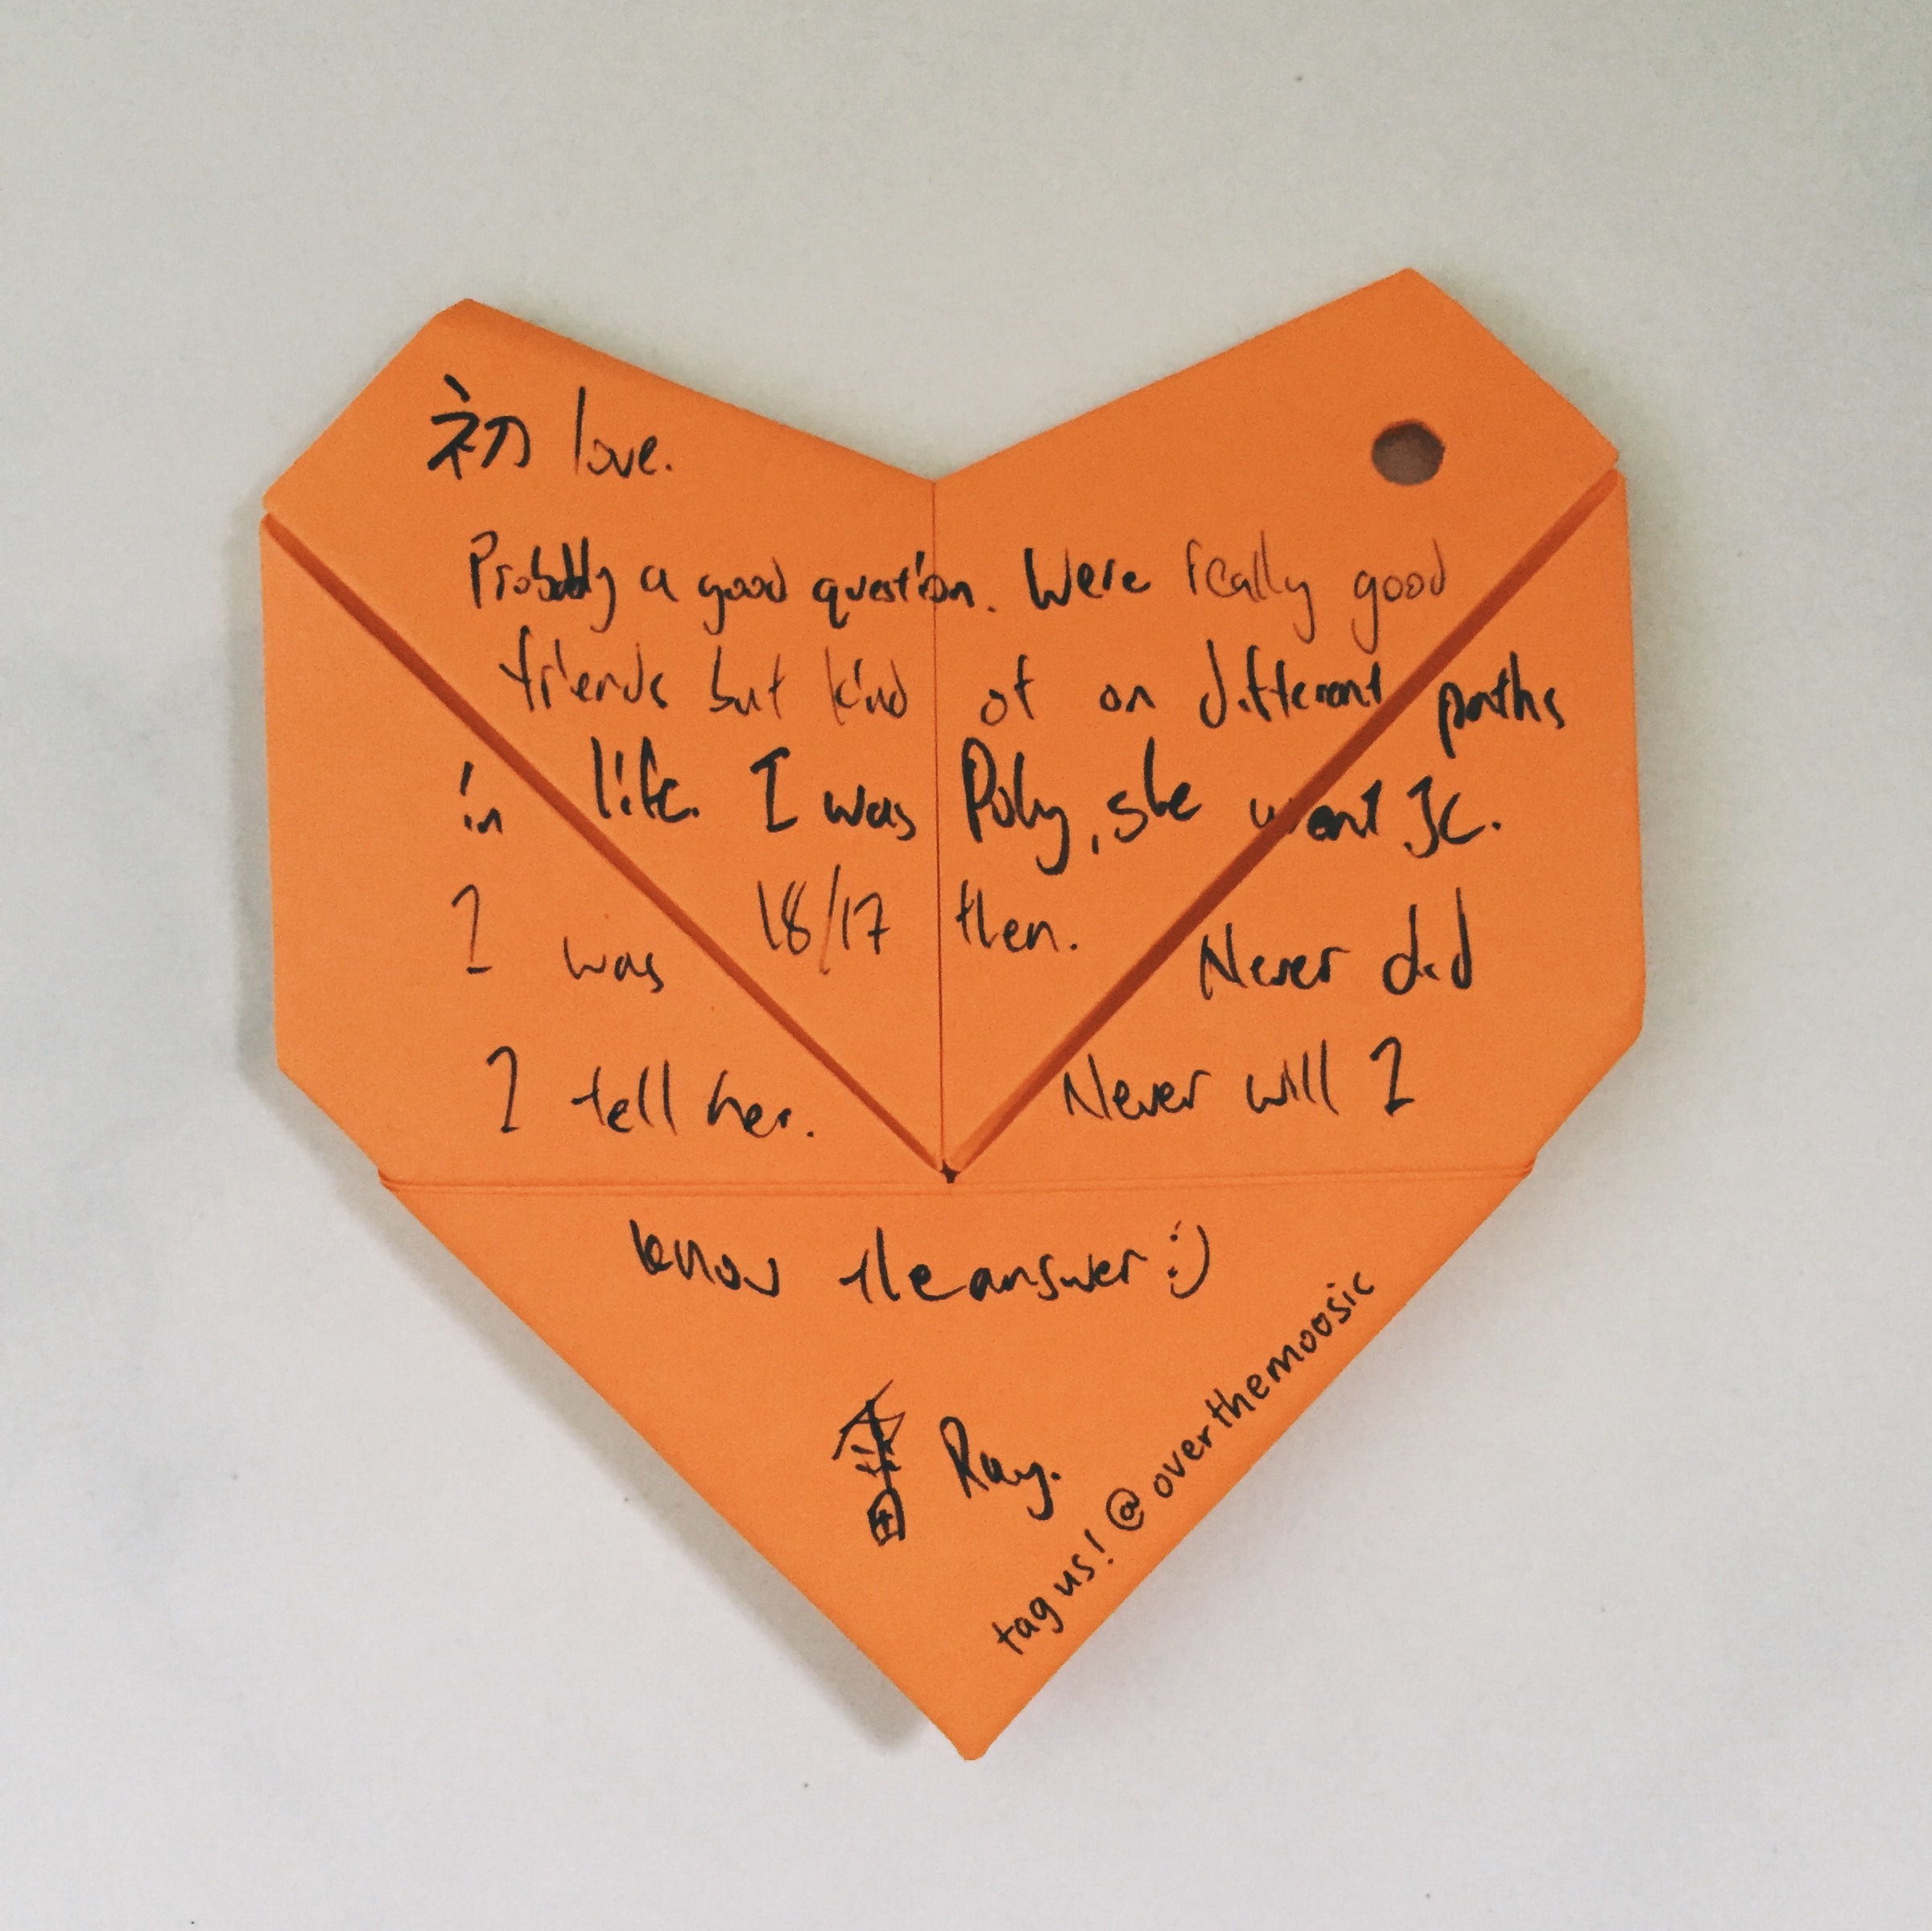 初 love.
Probably a good question. Were really good
friends but kind of on different paths
in life. I was Poly, she went JC.
I was 18/17 then. Never did
I tell her. Never will I
know the answer :)
Ray.
tag us! @overthemoosic